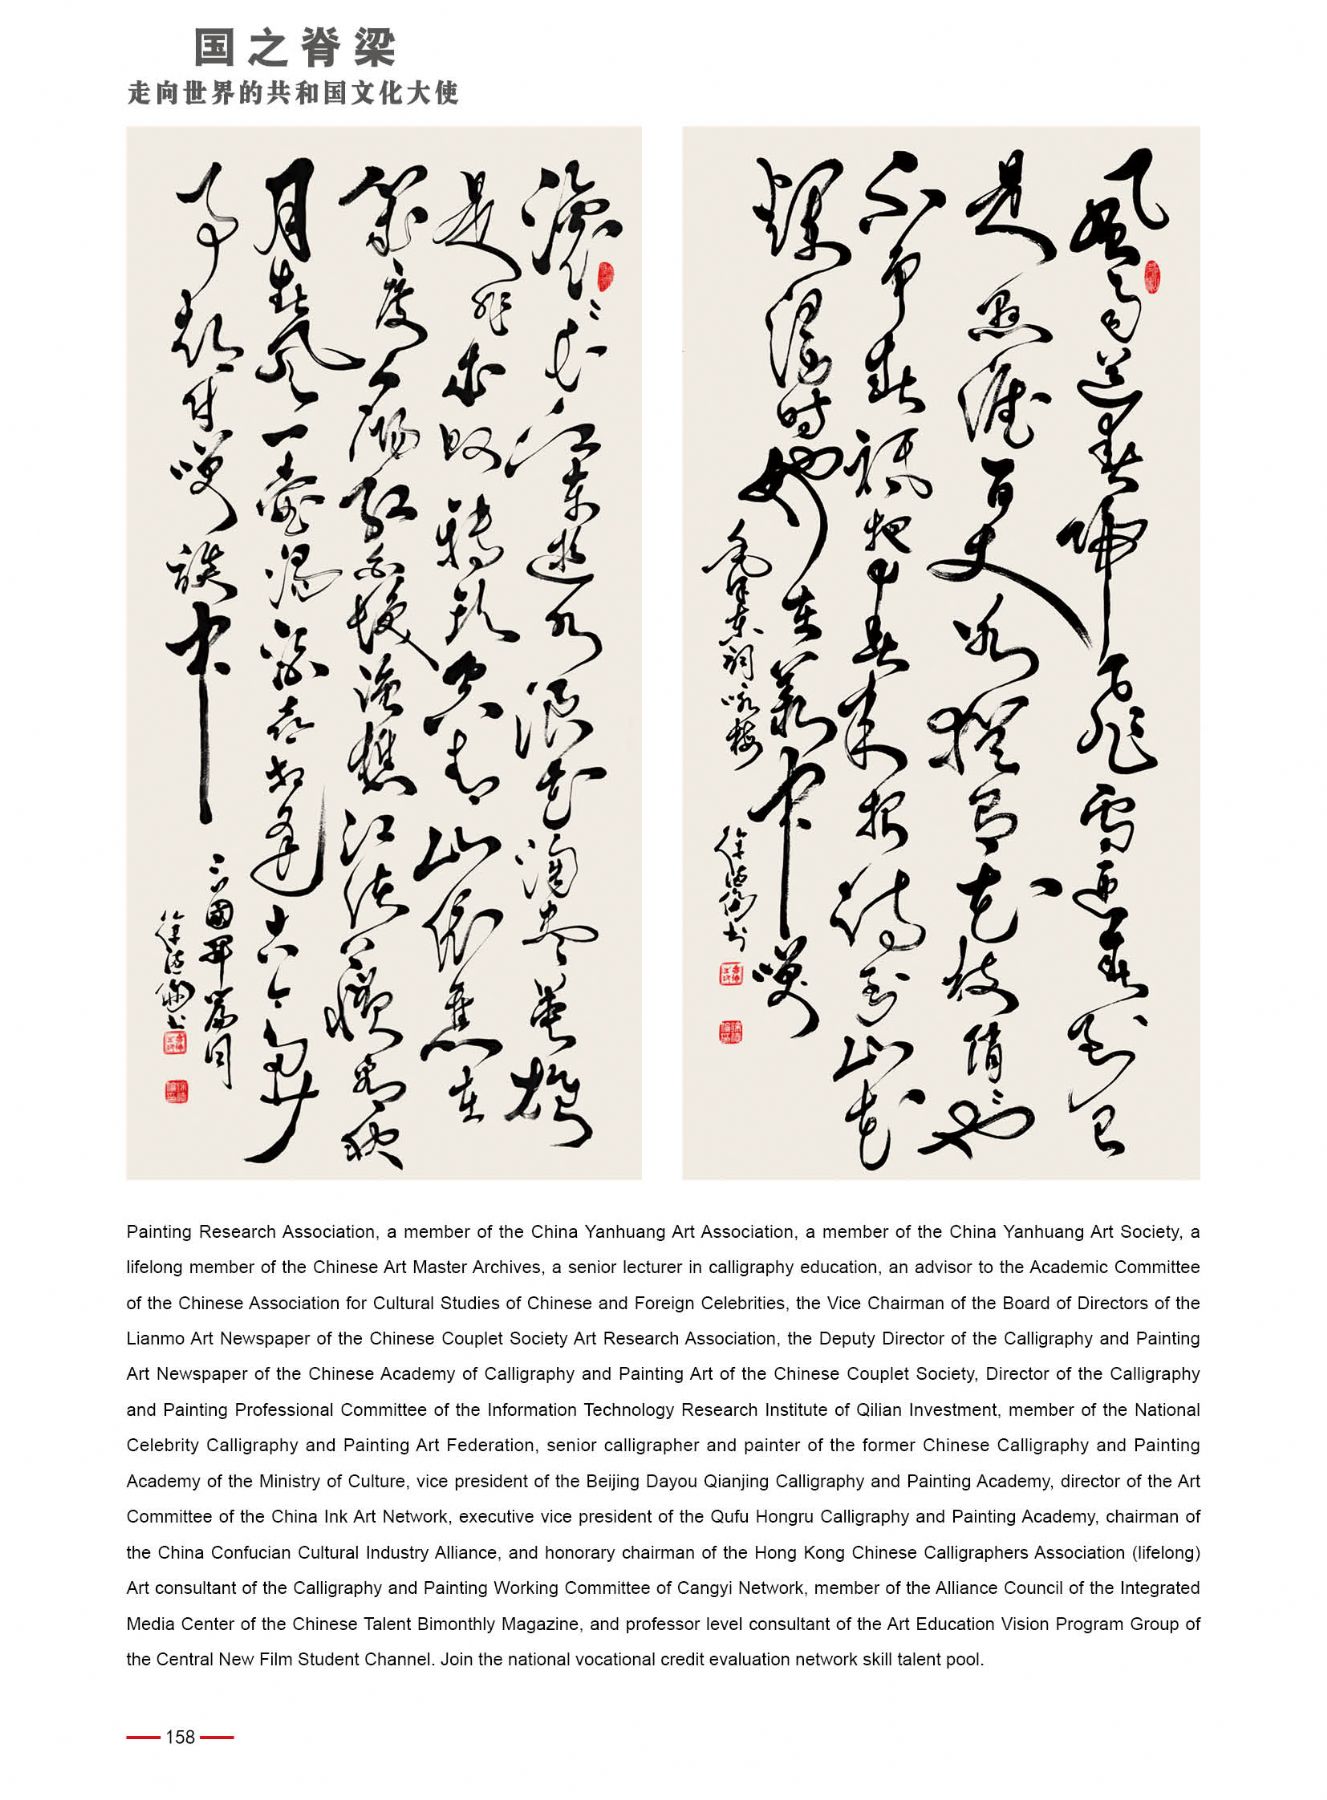 国之脊梁
走向世界的共和国文化大使
滚〻长江东逝水浪花淘尽英雄
是非成败转头空青山依旧在
几度夕阳红白发渔樵江渚上惯看秋
月春风一壶浊酒喜相逢古今多少
事都付笑谈中
三國开篇词
风雨送春归飞雪迎春到已
是悬崖百丈冰犹有花枝俏〻也
不争春祇把春来报待到山花
烂漫时她在丛中笑
毛泽东词咏梅
Painting Research Association, a member of the China Yanhuang Art Association, a member of the China Yanhuang Art Society, a
lifelong member of the Chinese Art Master Archives, a senior lecturer in calligraphy education, an advisor to the Academic Committee
of the Chinese Association for Cultural Studies of Chinese and Foreign Celebrities, the Vice Chairman of the Board of Directors of the
Lianmo Art Newspaper of the Chinese Couplet Society Art Research Association, the Deputy Director of the Calligraphy and Painting
Art Newspaper of the Chinese Academy of Calligraphy and Painting Art of the Chinese Couplet Society, Director of the Calligraphy
and Painting Professional Committee of the Information Technology Research Institute of Qilian Investment, member of the National
Celebrity Calligraphy and Painting Art Federation, senior calligrapher and painter of the former Chinese Calligraphy and Painting
Academy of the Ministry of Culture, vice president of the Beijing Dayou Qianjing Calligraphy and Painting Academy, director of the Art
Committee of the China Ink Art Network, executive vice president of the Qufu Hongru Calligraphy and Painting Academy, chairman of
the China Confucian Cultural Industry Alliance, and honorary chairman of the Hong Kong Chinese Calligraphers Association (lifelong)
Art consultant of the Calligraphy and Painting Working Committee of Cangyi Network, member of the Alliance Council of the Integrated
Media Center of the Chinese Talent Bimonthly Magazine, and professor level consultant of the Art Education Vision Program Group of
the Central New Film Student Channel. Join the national vocational credit evaluation network skill talent pool.
158